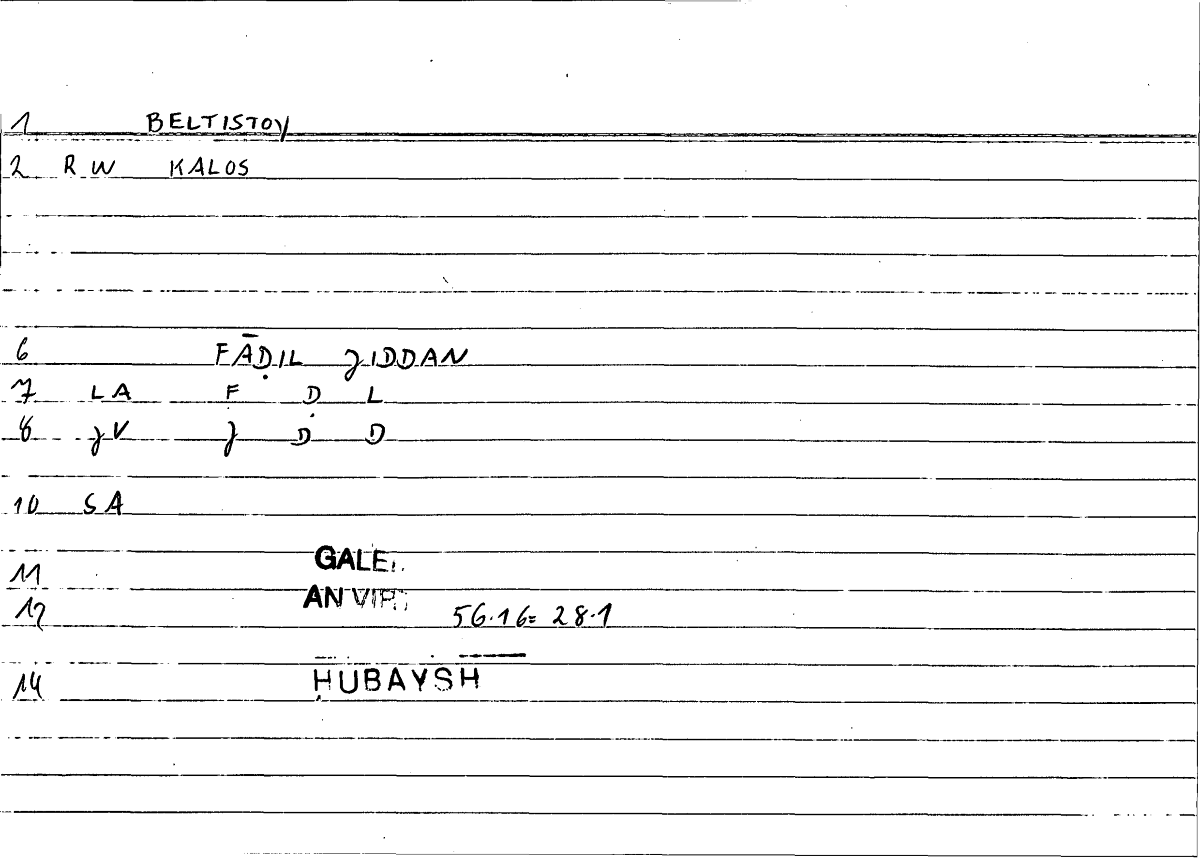 1 BELTISTOY
2 R W KALOS
6 FĀḌIL JIDDAN
7 LA F Ḍ L
8 JV J D D
10 SA
11 GALE
12 AN VIRT 56.16= 28.1
14 ḤUBAYSH